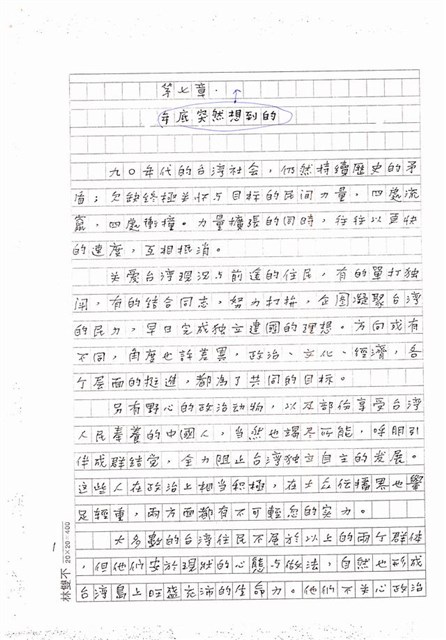 第七章.
年底突然想到的
九〇年代的台湾社会，仍然持續歷史的矛
盾：欠缺終極关怀与目标的民间力量，四處流
竄，四處衝撞。力量擴張的同時，往往以更快
的速度，互相抵消。
关爱台湾現況与前途的住民，有的單打独
闹，有的结合同志，努力打拚，企图凝聚台湾
的民力，早日完成独立建國的理想。方向或有
不同，角度也許差異，政治、文化、經濟，各
个层面的挺進，都為了共同的目标。
另有野心的政治动物，以及部份享受台湾
人民奉養的中國人，当然也竭尽可能，呼朋引
伴成群结党，全力阻止台湾独立自主的发展。
這些人在政治上相当積極，在大众传播界也舉
足輕重，两方面都有不可輕忽的实力。
大多數的台湾住民不属於以上的两个群体
，但他們安於現狀的心態与做法，自然也形成
台湾島上旺盛充沛的生命力。他們不关心政治
1
林雙不 20×20=400